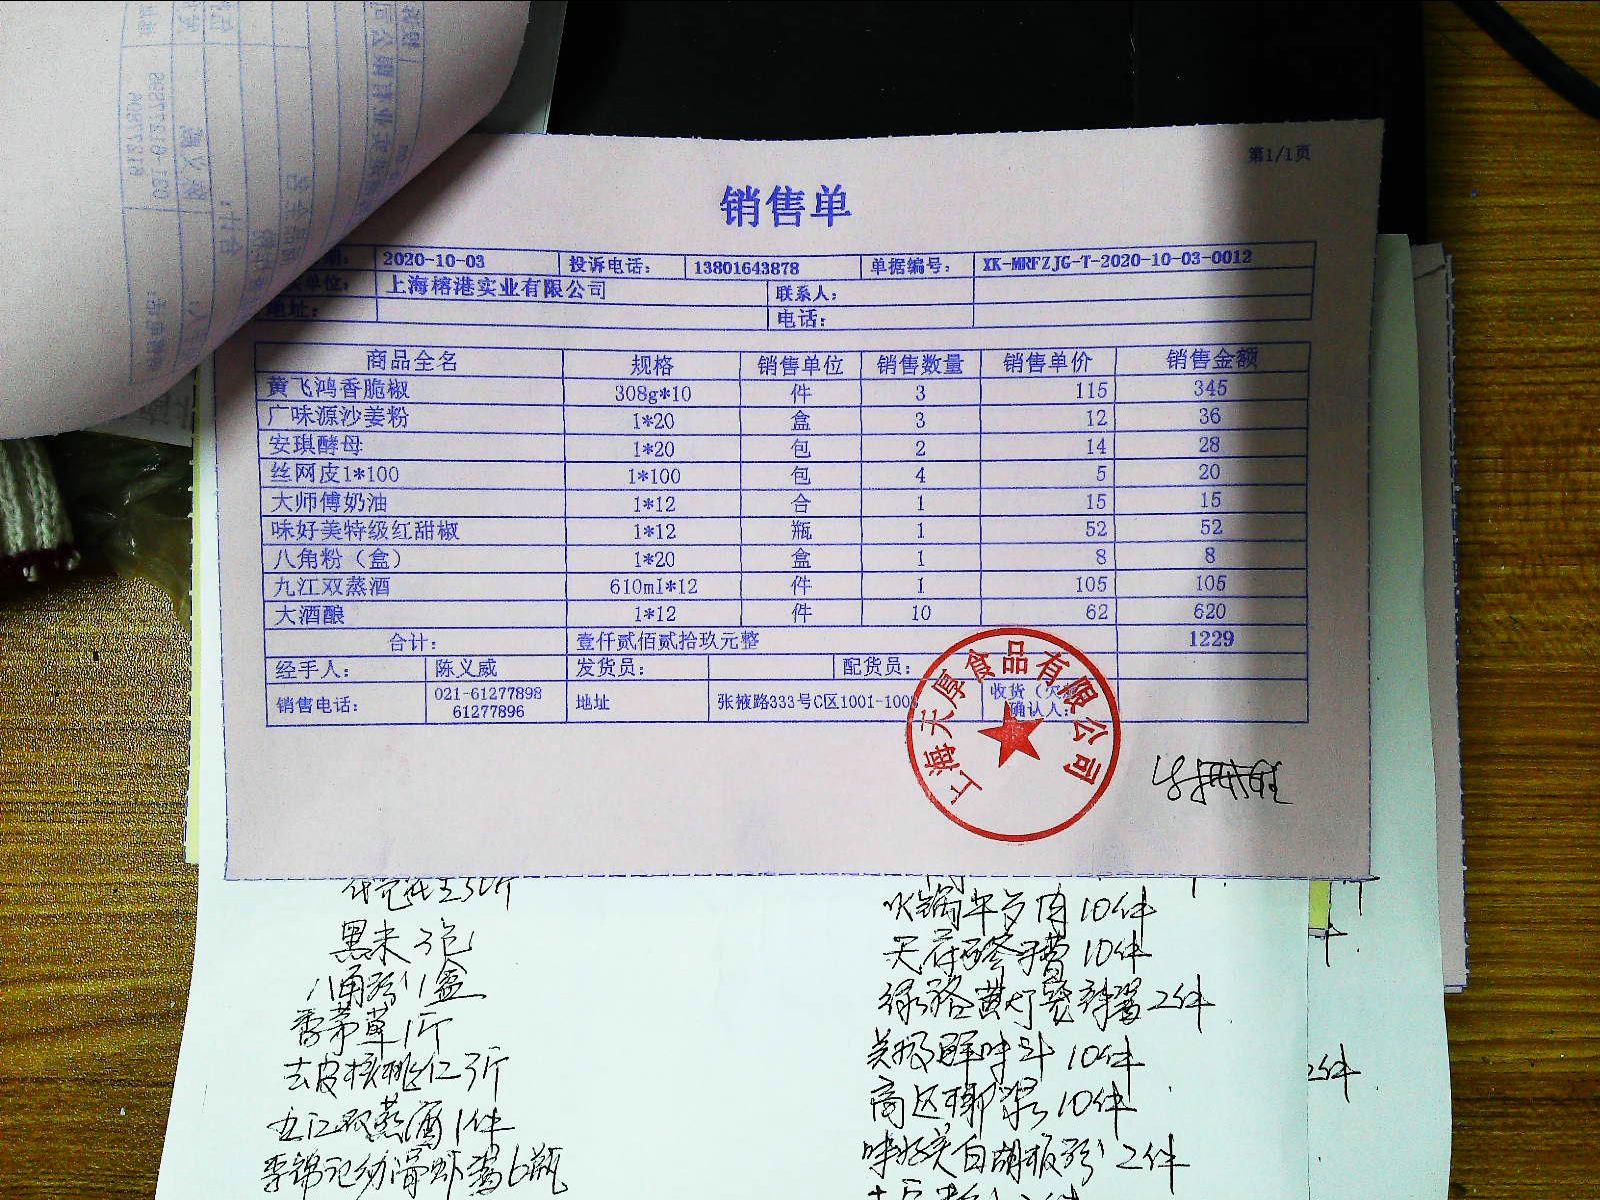 第1/1页
销售单
2020-10-03 投诉电话： 13801643878 单据编号： XK-MRFZJG-T-2020-10-03-0012
单位： 上海榕港实业有限公司 联系人：
地址： 电话：
商品全名 规格 销售单位 销售数量 销售单价 销售金额
黄飞鸿香脆椒 308g*10 件 3 115 345
广味源沙姜粉 1*20 盒 3 12 36
安琪酵母 1*20 包 2 14 28
丝网皮1*100 1*100 包 4 5 20
大师傅奶油 1*12 合 1 15 15
味好美特级红甜椒 1*12 瓶 1 52 52
八角粉（盒） 1*20 盒 1 8 8
九江双蒸酒 610ml*12 件 1 105 105
大酒酿 1*12 件 10 62 620
合计： 壹仟贰佰贰拾玖元整 1229
经手人： 陈义威 发货员： 配货员：
销售电话： 021-61277898 61277896 地址 张掖路333号C区1001-1003 收货（欠 确认人：
上海天厚食品有限公司
黑米3包
八角粉1盒
香茅草1斤
去皮核桃仁3斤
九江双蒸酒1件
李锦记幼滑虾酱6瓶
10件
10件
黄灯笼辣酱2件
美极鲜味汁10件
高达椰浆10件
味好美白胡椒粉2件
2件